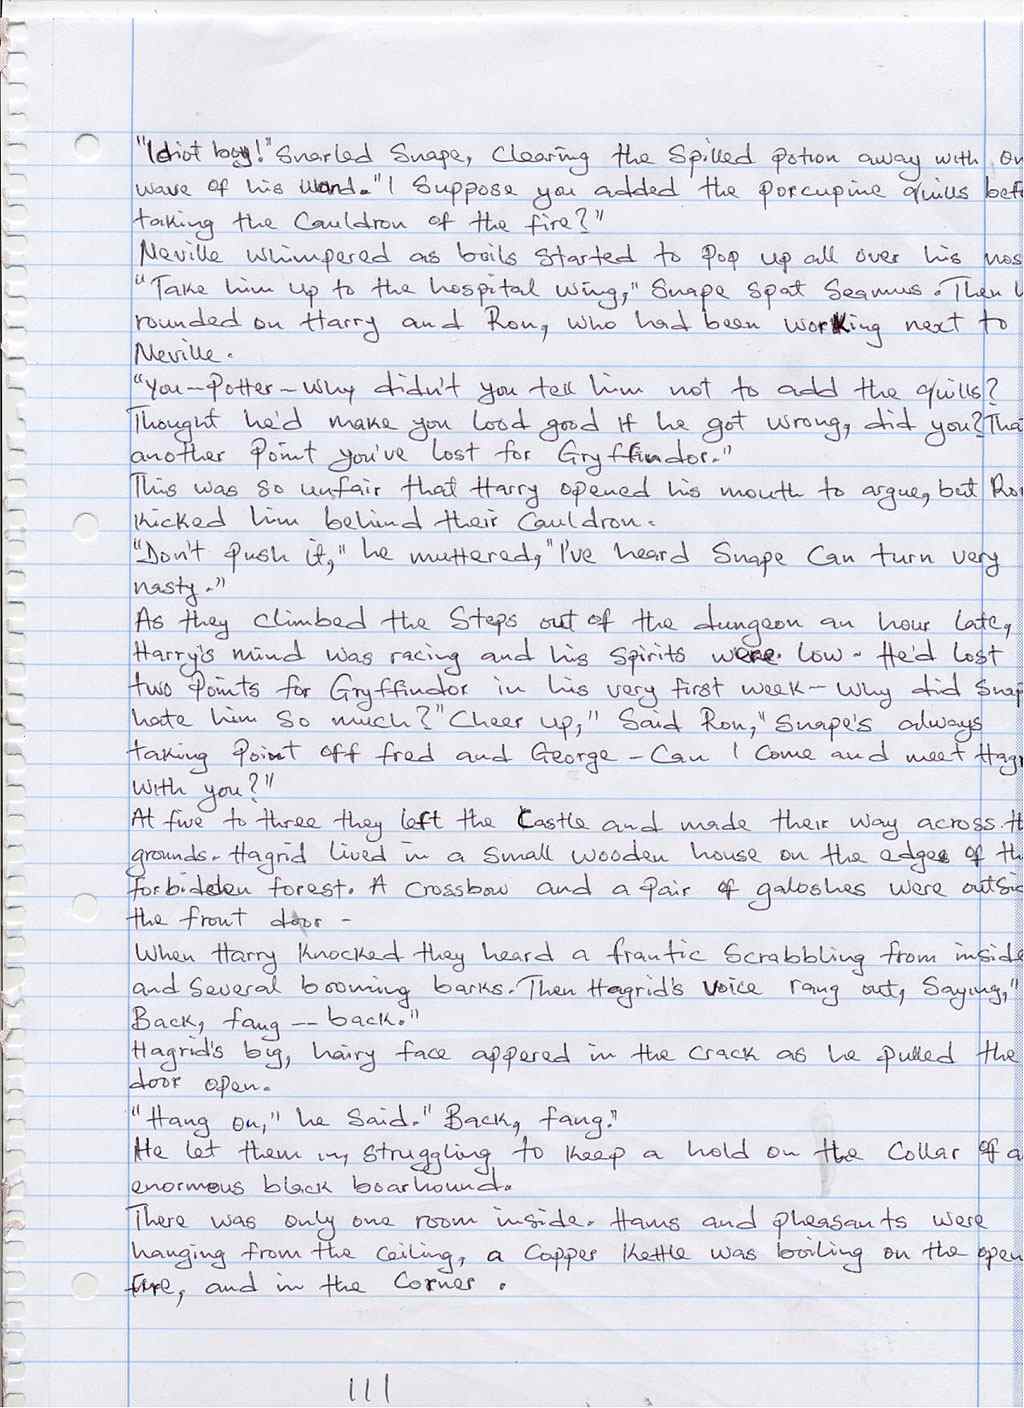 "Idiot boy!" Snarled Snape, Clearing the Spilled Potion away with on
wave of his wand. "I Suppose you added the porcupine quills bef
taking the Cauldron of the fire?"
Neville whimpered as boils Started to Pop up all over his nos
"Take him up to the hospital wing," Snape spat Seamus. Then h
rounded on Harry and Ron, who had been working next to
Neville.
"You—Potter—Why didn't you tell him not to add the quills?
Thought he'd make you lood good If he got wrong, did you? Tha
another Point you've lost for Gryffindor."
This was so unfair that Harry opened his mouth to argue, but Ro
kicked him behind their Cauldron.
"Don't push it," he muttered, "I've heard Snape Can turn very
nasty."
As they climbed the Steps out of the dungeon an hour late,
Harry's mind was racing and his Spirits were low - He'd lost
two Points for Gryffindor in his very first week—Why did Snap
hate him So much? "Cheer up," Said Ron, "Snape's always
taking Point off fred and George — Can I Come and meet Hagr
with you?"
At five to three they left the Castle and made their way across th
grounds. Hagrid lived in a Small wooden house on the edges of th
forbidden forest. A crossbow and a Pair of galoshes were outsid
the front door -
When Harry Knocked they heard a frantic Scrabbling from inside
and Several booming barks. Then Hagrid's Voice rang out, Saying, "
Back, fang -- back."
Hagrid's big, hairy face appered in the crack as he pulled the
door open.
"Hang on," he Said. "Back, fang."
He let them in, struggling to keep a hold on the Collar of a
enormous black boarhound.
There was only one room inside. Hams and pheasants were
hanging from the ceiling, a Copper Kettle was boiling on the open
fire, and in the Corner .
111